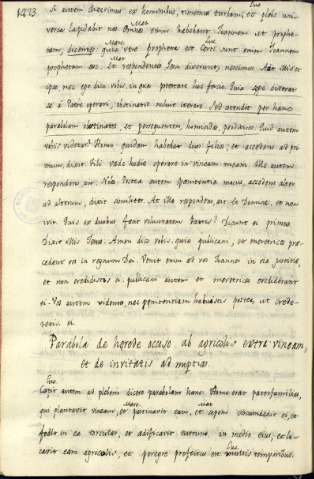 1223.
Si autem dixerimus ex hominibus, timemus turbam; et plebs uni-
versa lapidabit nos. Omnes enim habebant Joannem ut prophe-
tam, quia vere propheta est
prophetam est. Et respondentes Jesu dixerunt: nescimus. Ait illis et
ipse, nec ego dico vobis, in qua potestate haec facio.
a Patre
parabolam et
vobis videtur? Homo quidam habebat duos filios; et accedens ad pri-
mum, dixit: Fili vade hodie operare in vineam meam. Ille autem
respondens ait: Nolo. Postea autem poenitentia motus, accedens autem
ad alterum, dixit similiter. At ille respondens, ait: Eo Domine, et non
ivit. Quis ex duobus fecit voluntatem Patris? Dicunt ei: primus.
Dixit illis Jesus: Amen dico vobis, quia publicani, et meretrices prae-
cedent vos in regnum Dei. Venit enim ad vos Joannes in via justitiae,
et non credidistis ei: publicani autem et meretrices crediderunt
ei. Vos autem videntes, nec poenitentiam habuistis postea, ut crede-
retis ei.
Parabola de herede occiso ab agricolis extra vineam,
et de invitatis ad nuptias.
Luc
Cepit autem ad plebem dicere parabolam hanc. Homo erat paterfamilias,
qui plantavit vineam, et pastinavit eam, et sepem circumdedit ei, et
fodit in ea torcular, et aedificavit turrim in medio ejus, et lo-
cavit eam agricolis, et peregre profectus est multis temporibus.